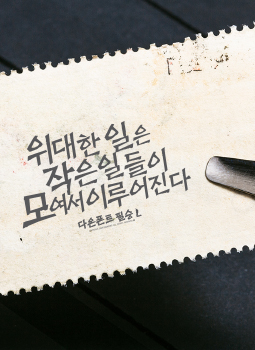 위대한 일은
작은 일들이
모여서 이루어진다
다온폰트 필승 L